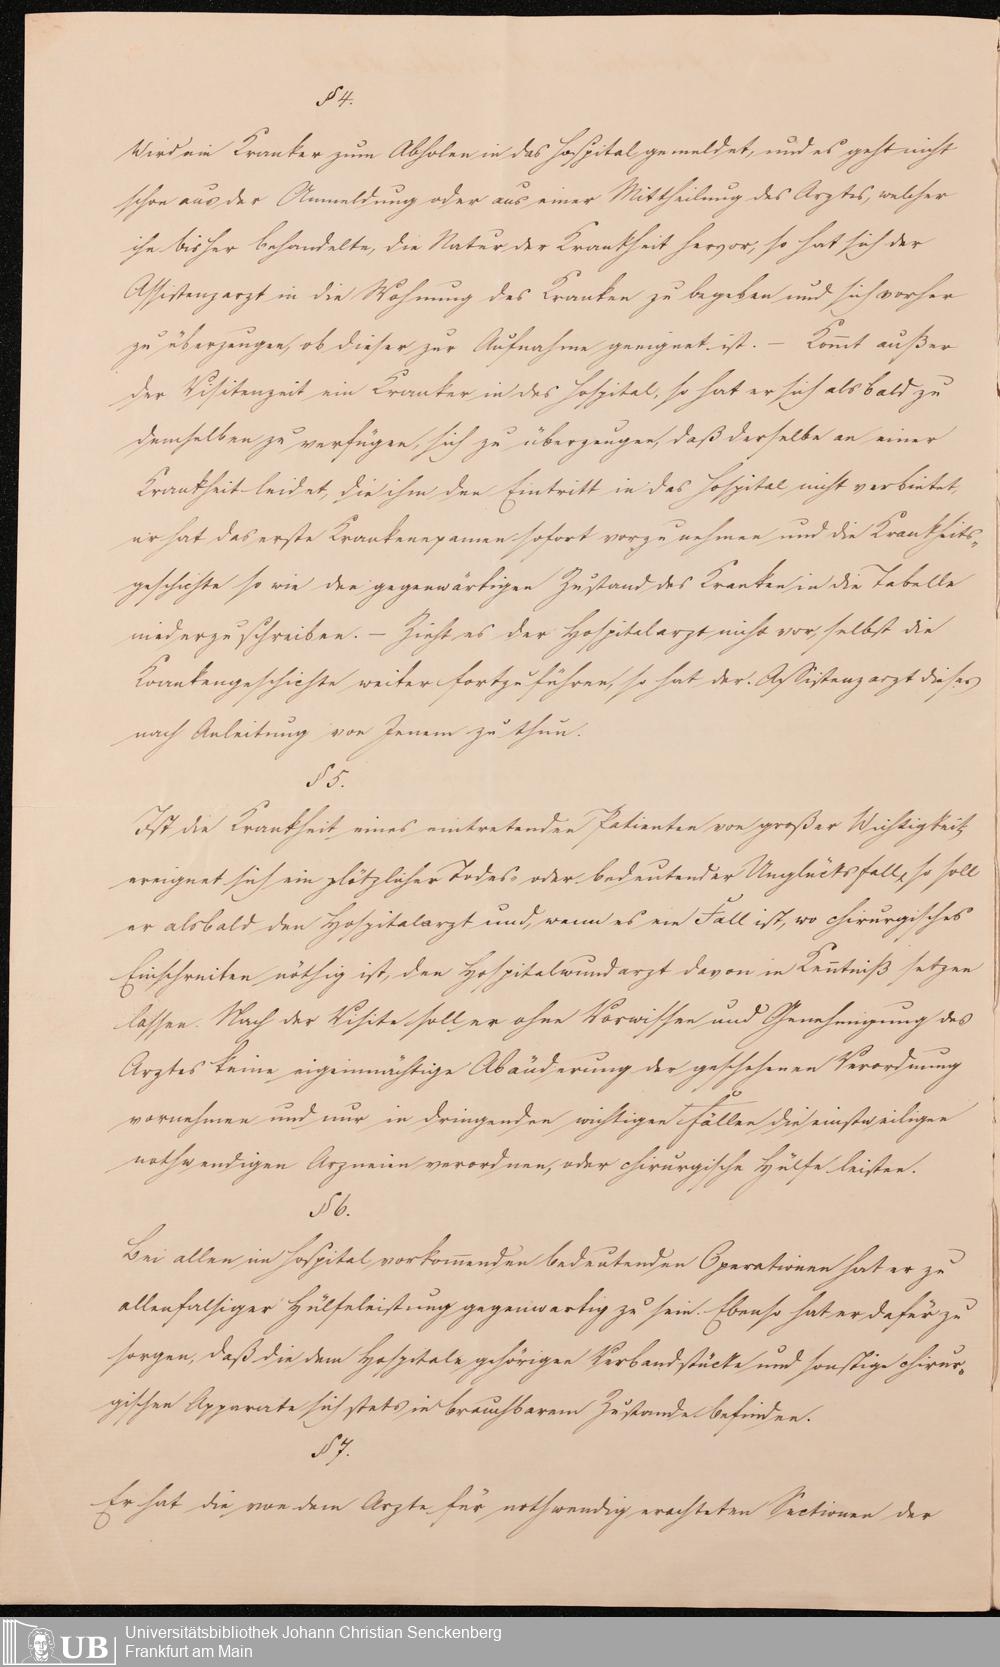 § 4.
Wird ein Kranker zum Abholen in das Hospital gemeldet, und es geht nicht
schon aus der Anmeldung oder aus einer Mittheilung des Arztes, welcher
ihn bisher behandelte, die Natur der Krankheit hervor, so hat sich der
Assistenzarzt in die Wohnung des Kranken zu begeben und sich vorher
zu überzeugen, ob dieser zur Aufnahme geeignet ist. – Kom̄t außer
der Visitenzeit ein Kranker in das Hospital, so hat er sich alsbald zu
demselben zu verfügen, sich zu überzeugen, daß derselbe an einer
Krankheit leidet, die ihm den Eintritt in das Hospital nicht verbietet,
er hat das erste Krankenexamen sofort vorzunehmen und die Krankheits-
geschichte so wie den gegenwärtigen Zustand des Kranken in die Tabelle
niederzuschreiben. – Zieht es der Hospitalarzt nicht vor, selbst die
Krankengeschichte weiter fortzuführen, so hat der Assistenzarzt dieses
nach Anleitung von Jenem zu thun.
§ 5.
Ist die Krankheit eines eintretenden Patienten von großer Wichtigkeit,
ereignet sich ein plötzlicher Todes- oder bedeutender Unglücksfall, so soll
er alsbald den Hospitalarzt und, wenn es ein Fall ist, wo chirurgisches
Einschreiten nöthig ist, den Hospitalwundarzt davon in Ken̄tniß setzen
lassen. Nach der Visite soll er ohne Vorwissen und Genehmigung des
Arztes keine eigenmächtige Abänderung der geschehenen Verordnung
vornehmen und nur in dringenden wichtigen Fällen die einstweiligen
nothwendigen Arzneien verordnen, oder chirurgische Hülfe leisten.
§ 6.
Bei allen im Hospital vorkom̄enden bedeutenden Operationen hat er zu
allenfalsiger Hülfeleistung gegenwärtig zu sein. Ebenso hat er dafür zu
sorgen, daß die dem Hospitale gehörigen Verbandstücke und sonstige chirur-
gischen Apparate sich stets in brauchbarem Zustande befinden.
§ 7.
Er hat die von dem Arzte für nothwendig erachteten Sectionen der
UB
Universitätsbibliothek Johann Christian Senckenberg
Frankfurt am Main